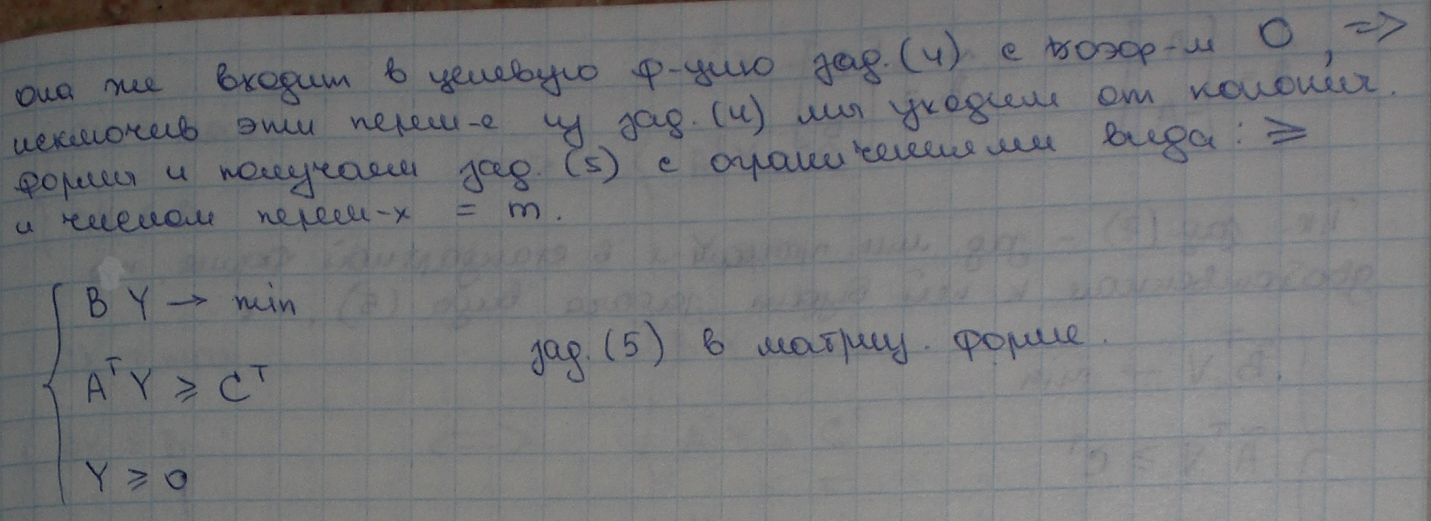 она же входит в целевую ф-цию зад. (4) с коэф-м 0, =>
исключив эти перем-е из зад. (4) мы уходим от канонич.
формы и получаем зад. (5) с ограничениями вида: ≥
и числом перем-х = m.
B Y → min
зад. (5) в матриц. форме.
Aᵀ Y ≥ Cᵀ
Y ≥ 0